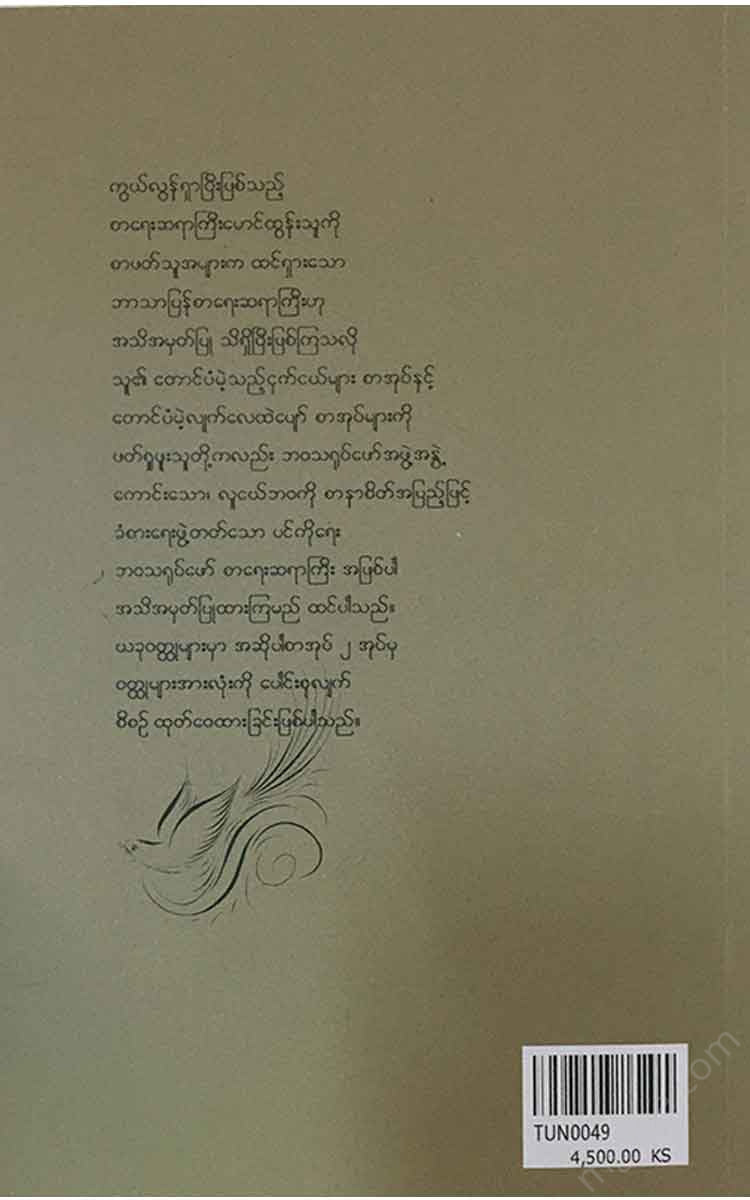 ကွယ်လွန်ရှာပြီးဖြစ်သည့်
စာရေးဆရာကြီးမောင်ထွန်းသူကို
စာဖတ်သူအများက ထင်ရှားသော
ဘာသာပြန်စာရေးဆရာကြီးဟု
အသိအမှတ်ပြု သိရှိပြီးဖြစ်ကြသလို
သူ၏ တောင်ပံမဲ့သည့်ငှက်ငယ်များ စာအုပ်နှင့်
တောင်ပံမဲ့လျက်လေထဲပျော် စာအုပ်များကို
ဖတ်ရှုဖူးသူတို့ကလည်း ဘဝသရုပ်ဖော်အဖွဲ့အနွဲ့
ကောင်းသော၊ လူငယ်ဘဝကို စာနာစိတ်အပြည့်ဖြင့်
ခံစားရေးဖွဲ့တတ်သော ပင်ကိုရေး
ဘဝသရုပ်ဖော် စာရေးဆရာကြီး အဖြစ်ပါ
အသိအမှတ်ပြုထားကြမည် ထင်ပါသည်။
ယခုဝတ္ထုများမှာ အဆိုပါစာအုပ် ၂ အုပ်မှ
ဝတ္ထုများအားလုံးကို ပေါင်းစုလျက်
စီစဉ် ထုတ်ဝေထားခြင်းဖြစ်ပါသည်။
TUN0049
4,500.00 KS